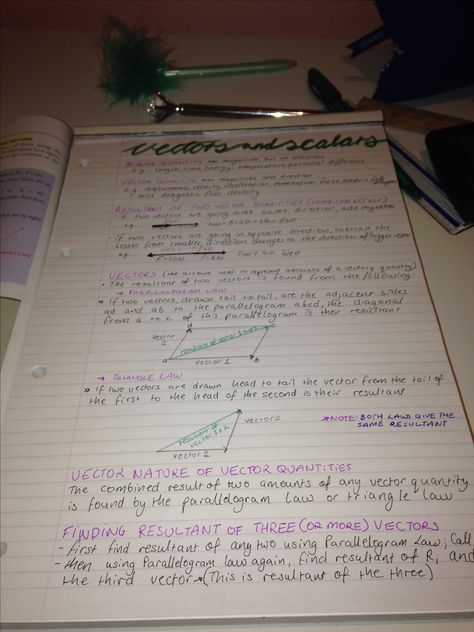 Vectors and scalars
SCALAR QUANTITY has magnitude but no direction
e.g. length, time, energy, temperature, potential difference
VECTOR QUANTITY has magnitude and direction
e.g. displacement, velocity, acceleration, momentum, force, electric
and magnetic flux density
RESULTANT OF TWO VECTOR QUANTITIES
if two vectors are going in the same direction, add together
eg.
if two vectors are going in opposite direction, subtract the
lesser from smaller, direction changes to the direction of bigger
eg. West
VECTORS (the arrows used to represent amounts of a vector quantity)
• The resultant of two vectors is found from the following
→ PARALLELOGRAM LAW
» If two vectors, drawn tail to tail, are the adjacent sides
ad and ab to the parallelogram abcd, the diagonal
from a to c of this parallelogram is their resultant
d c
vector 2 resultant of vector 1 and 2
a vector 1 b
→ TRIANGLE LAW
» if two vectors are drawn head to tail the vector from the tail of
the first to the head of the second is their resultant
resultant of vector 1, 2 vector 2
vector 1
*NOTE: BOTH LAWS GIVE THE
SAME RESULTANT
VECTOR NATURE OF VECTOR QUANTITIES
The combined result of two amounts of any vector quantity
is found by the parallelogram law or triangle law
FINDING RESULTANT OF THREE (OR MORE) VECTORS
- first find resultant of any two using Parallelogram Law; Call
- then using Parallelogram law again, find resultant of R, and
the third vector → (This is resultant of the three)